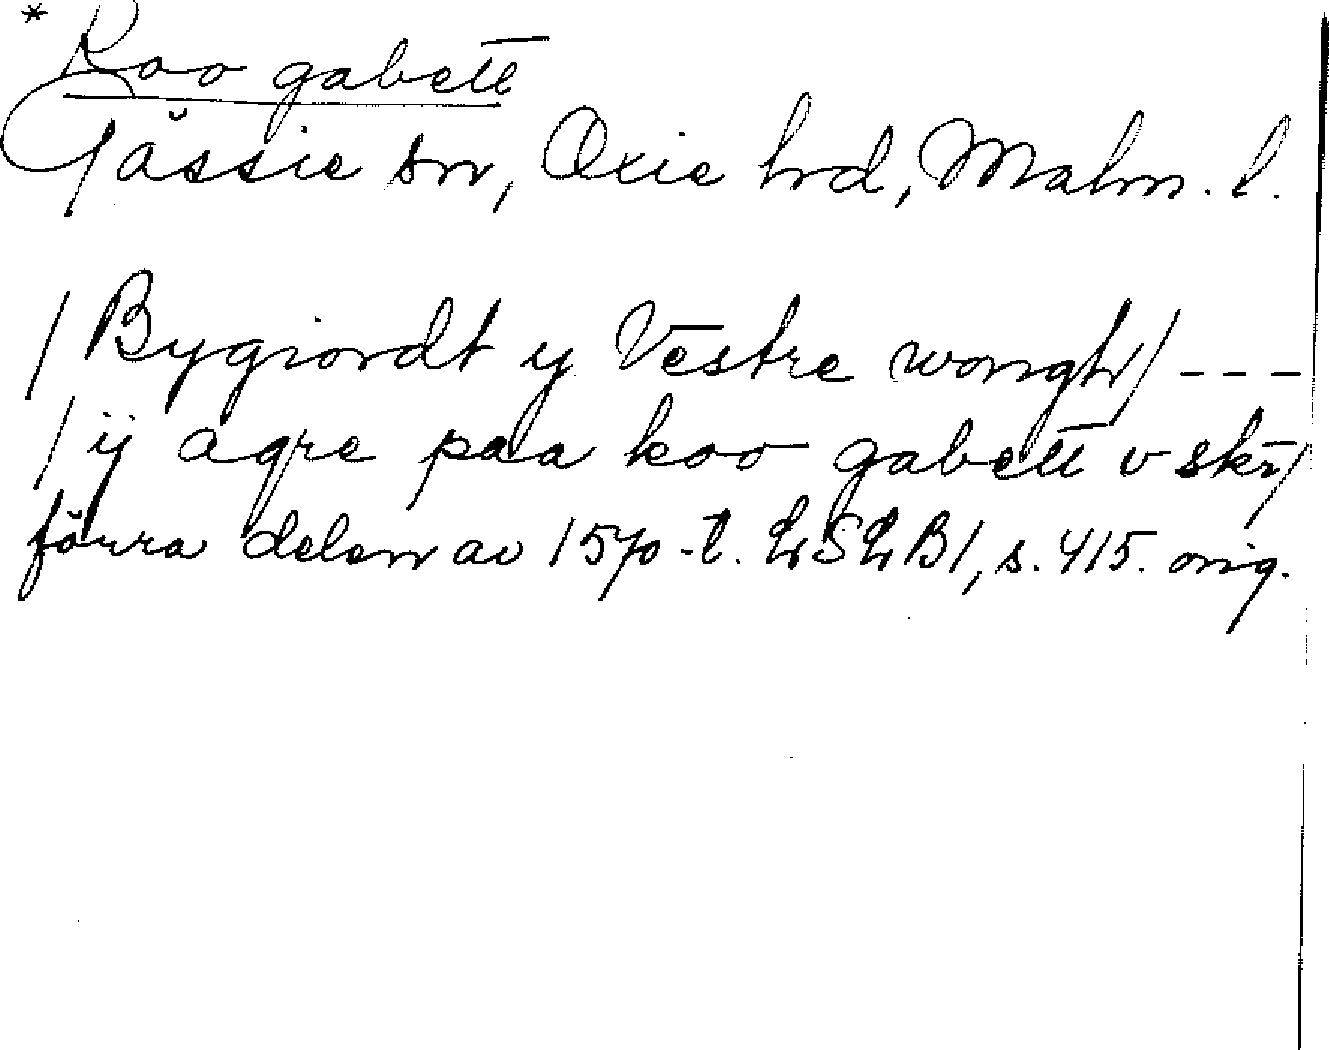 * Koo gabett̄
Gåssie sn, Oxie hd, Malm. l.
/Bygiordt y Vēstre wongh/ - - -
/ij agre paa koo gabett̄ v skr̄/
förra delen av 1570-t. LSLB1, s. 415. orig.